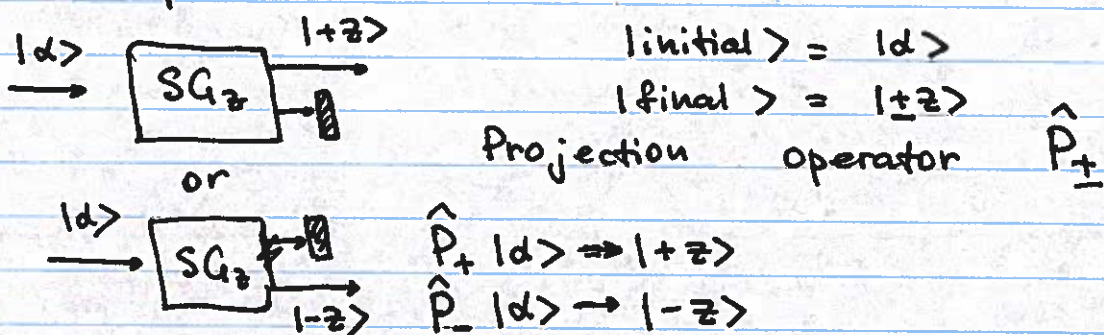 |α> |+z> |initial> = |α>
SG_z |final> = |±z>
Projection operator P̂_±
or
|α>
SG_z P̂_+ |α> → |+z>
|-z> P̂_- |α> → |-z>